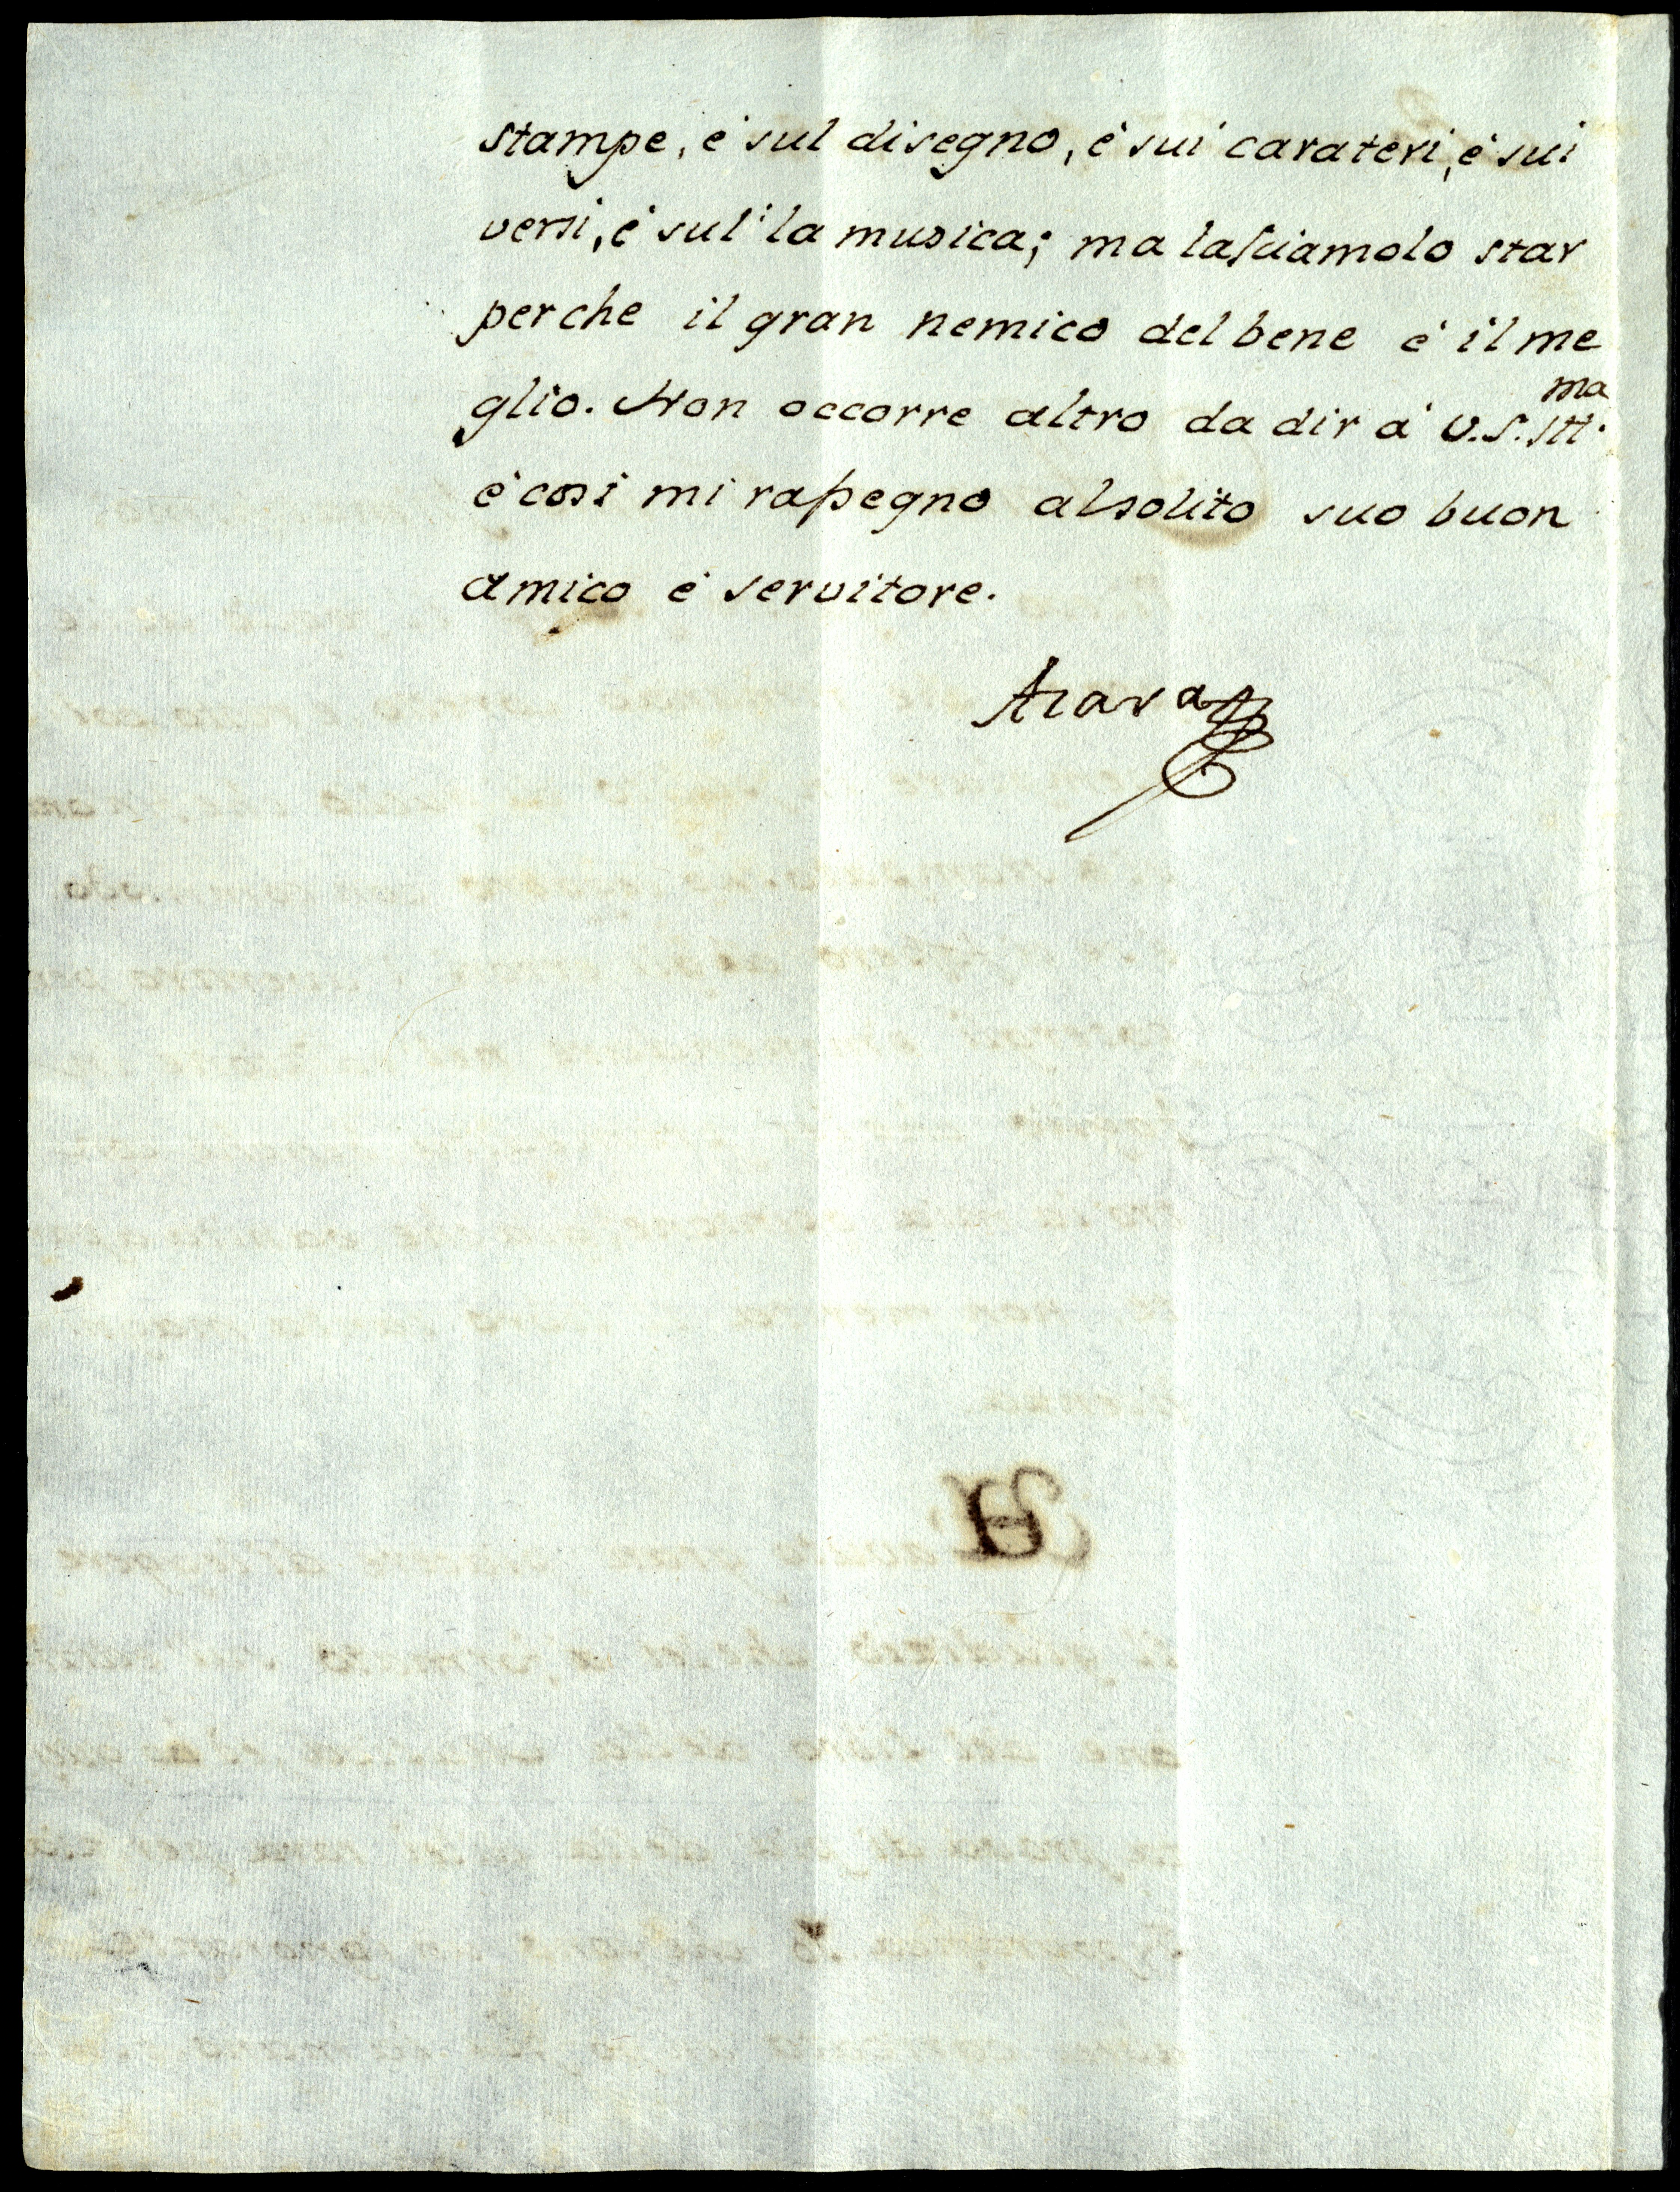 stampe, è sul disegno, è sui carateri, è sui
versi, è sul' la musica; ma lasciamolo star
perche il gran nemico del bene è il me
glio. Non occorre altro da dir à V.S. Ill.ma
è cosi mi rassegno al solito suo buon
amico è servitore.
Azara